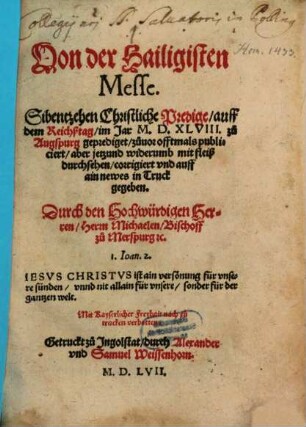 Collegij S. Salvatoris in
Hom. 1493
Von der Hailigisten
Messe.
Sibentzehen Christliche Predige/auff
dem Reichstag/im Jar M. D. XLVIII. zů
Augspurg geprediget/zůuor offtmals publi-
ciert/aber jetzund widerumb mit fleiß
durchsehen/corrigiert vnd auff
ain newes in Truck
gegeben.
Durch den Hochwürdigen Her-
ren/Herrn Michaelen/Bischoff
zů Merspurg ꝛc.
1. Ioan. 2.
IESVS CHRISTVS ist ain versönung für vnse-
re sünden/ vnnd nit allain für vnsere/ sonder für der
gantzen welt.
Mit Kayserlicher Freyhait nach zů
trucken verbotten.
Getruckt zů Ingolstat/durch Alexander
vnd Samuel Weissenhorn.
M. D. LVII.